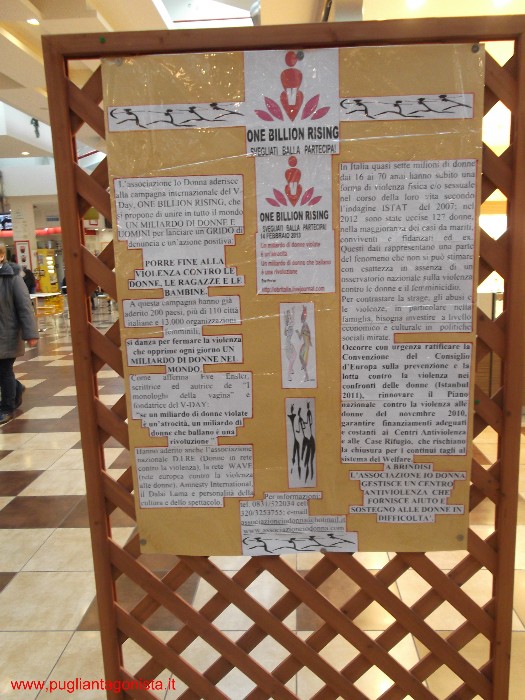 ONE BILLION RISING
SVEGLIATI BALLA PARTECIPA!
ONE BILLION RISING
SVEGLIATI BALLA PARTECIPA!
14 FEBBRAIO 2013
Un miliardo di donne violate
è un'atrocità
Un miliardo di donne che ballano
è una rivoluzione
L'associazione Io Donna aderisce
alla campagna internazionale del V-
Day, ONE BILLION RISING, che
si propone di unire in tutto il mondo
UN MILIARDO DI DONNE E
UOMINI per lanciare un GRIDO di
denuncia e un'azione positiva:
PORRE FINE ALLA
VIOLENZA CONTRO LE
DONNE, LE RAGAZZE E LE
BAMBINE.
A questa campagna hanno già
aderito 200 paesi, più di 110 città
italiane e 13.000 organizzazioni
femminili.
si danza per fermare la violenza
che opprime ogni giorno UN
MILIARDO DI DONNE NEL
MONDO.
Come afferma Eve Ensler,
scrittrice ed autrice de "I
monologhi della vagina" e
fondatrice del V-DAY:
"se un miliardo di donne violate
è un'atrocità, un miliardo di
donne che ballano è una
rivoluzione"
Hanno aderito anche l'associazione
nazionale D.I.RE (Donne in rete
contro la violenza), la rete WAVE
(rete europea contro la violenza
alle donne), Amnesty International,
il Dalai Lama e personalità della
cultura e dello spettacolo.
Per informazione
tel. 0831/522034 cell
320/3253755; e-mail
associazioneiodonna@hotmail.it
www.associazioneiodonna.com
In Italia quasi sette milioni di donne
dai 16 ai 70 anni hanno subito una
forma di violenza fisica e/o sessuale
nel corso della loro vita secondo
l'indagine ISTAT del 2007; nel
2012 sono state uccise 127 donne,
nella maggioranza dei casi da mariti,
conviventi e fidanzati ed ex.
Questi dati rappresentano una parte
del fenomeno che non si può stimare
con esattezza in assenza di un
osservatorio nazionale sulla violenza
contro le donne e il femminicidio.
Per contrastare la strage, gli abusi e
le violenze, in particolare nella
famiglia, bisogna investire a livello
economico e culturale in politiche
sociali mirate.
Occorre con urgenza ratificare la
Convenzione del Consiglio
d'Europa sulla prevenzione e la
lotta contro la violenza nei
confronti delle donne (Istanbul
2011), rinnovare il Piano
nazionale contro la violenza alle
donne del novembre 2010,
garantire finanziamenti adeguati
e costanti ai Centri Antiviolenza
e alle Case Rifugio, che rischiano
la chiusura per i continui tagli al
sistema del Welfare.
A BRINDISI
L'ASSOCIAZIONE IO DONNA
GESTISCE UN CENTRO
ANTIVIOLENZA CHE
FORNISCE AIUTO E
SOSTEGNO ALLE DONNE IN
DIFFICOLTA'
www.pugliantagonista.it